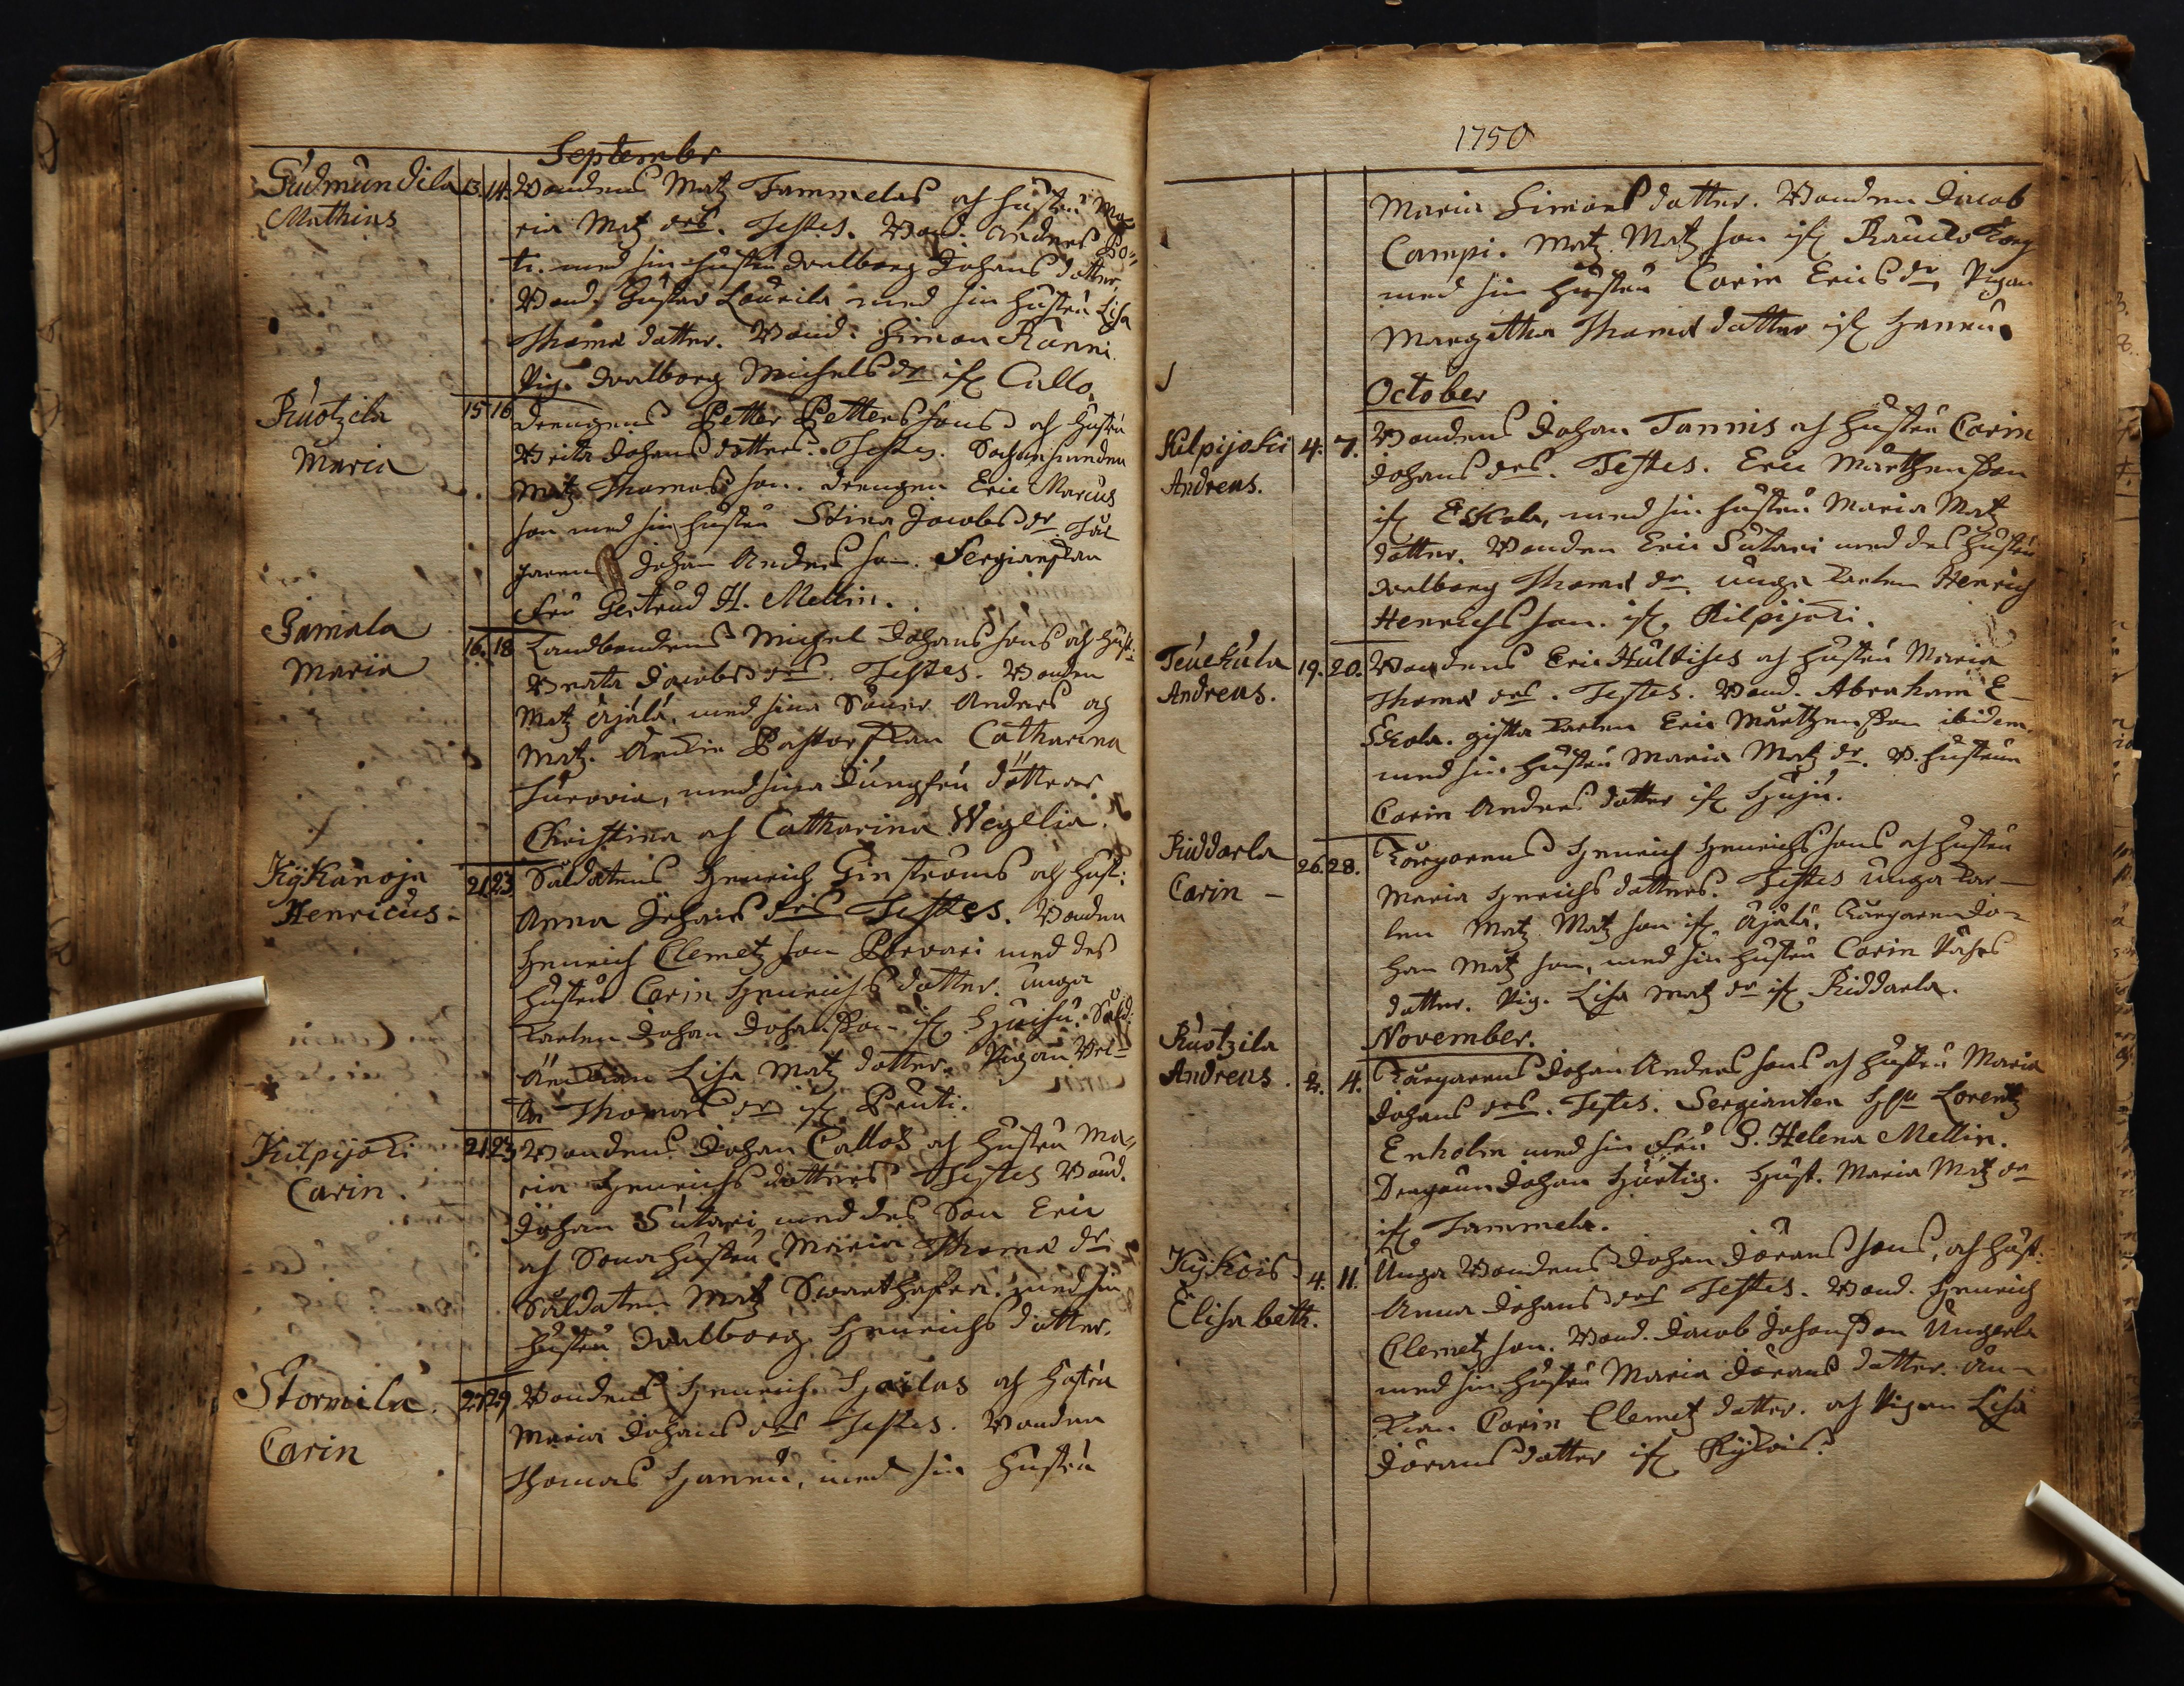 Septembr
Gudmundila 13. 14. Bondens Matz Tammelas och hustrus Ma
Mathias
ria Matz drs. Testes. Bond. Anders Po¬
ti. med sin hustru Walborg Johans dotter,
Bond. Gustav Laurila med sin hustru Lisa
Thomæ dotter. Bond. Simon Ranni.
Pig. Walborg Michels dr ifr. Callo.
Ruotzila 15 16 Drengens Petter Pettersons och hustru
Maria
Brita Johans dotters. Testes. Sochnesmeden
Matz Thomas son. Drengen Eric Marcus
son med sin hustru Stina Jacobs dr.
Johan Anders son. Sergianskan
Fru Gertrud H. Mellin.
Gamala 16. 18 Landbondens Michel Johans sons och hustr:
Maria
Beata Jacobs drs. Testes. Bonden
Matz Äjälä, med sina Söner Anders och
Matz. Änkie Pastorskan Catharina
med sina Jungfru dötterar
Christina och Catharina Wegelia.
Kykänoja 21. 23 Soldatens Henrich Ginstroms och hust:
Henricus
Anna Johans drs Testes. Bonden
Henrich Clemetz son Porvari med des
hustru Carin Henrichs dotter. unga
Karlen Johan Johansson ifr. Sold:
Änckian Lisa Matz dotter. Pigan
Thomas dr ifr. Pentti.
Kilpijoki 21. 23 Bondens Johan Callos och hustru Ma¬
Carin.
ria Henrichs dotters Testes Bond.
Johan Sutari med des Son Eric
och Sonahustru Maria Thomæ dr.
Soldaten Matz Swarthafra, med sin
hustru Walborg Henrichs dotter.
Stormila. 27 29 Bondens Henrich Hjeilas och hustru
Carin
Maria Johans drs Testes. Bonden
Thomas Hannu, med sin hustru
1750
Maria Simons dotter. Bonden Jacob
Campi. Matz Matz son ifr. Rauto
med sin hustru Carin Erics dr, Pigan
Margetha Thomæ dotter ifr Hannu.
October
Kilpijoki 4. 7. Bondens Johan Tannis och hustru Carin
Andreas.
Johans drs. Testes. Eric Mårthensson
ifr Eskola, med sin hustru Maria Matz
dotter. Bonden Eric Sutari med des hustru
Walborg Thomæ dr. unga Karlen Henrich
Henrichs son. ifr. Kilpijoki.
Teuckula 19. 20. Bondens Eric Hultises och hustru Maria
Andreas.
Thomæ drs. Testes. Bond. Abraham E-
Skola. gifta Karlen Eric Mårthensson ibidem.
med sin hustru Maria Matz dr. B. hustrun
Carin Anders dotter ifr Hjuju.
Riddarla 26. 28. Torparens Henrich Henrichs sons och hustru
Carin
Maria Henrichs dotters. Testes unga Kar-
len Matz Matz son ifr. Äjälä. Torparen Jo-
han Matz son, med sin hustru Carin
dotter. Pig. Lisa Matz dr ifr Riddarla.
November.
Ruotzila
Andreas 2. 4. Torparens Johan Anders sons och hustru Maria
Johans drs. Testes. Sergianten Lorentz
Enholm med sin Fru S. Helena Mellin.
Dragoun Johan Hurtig. Hust. Maria Matz dr
ifr. Tammela.
Kykois 4. 11. Unga Bondens Johan Jörans sons, och hust:
Elisabeth.
Anna Johans drs Testes. Bond. Henrich
Clemetz son. Bond. Jacob Johansson Ungerla
med sin hustru Maria Jörans dotter. Än-
kian Carin Clemetz dotter. och Pigan Lisa
Jörans dotter ifr Kykois.